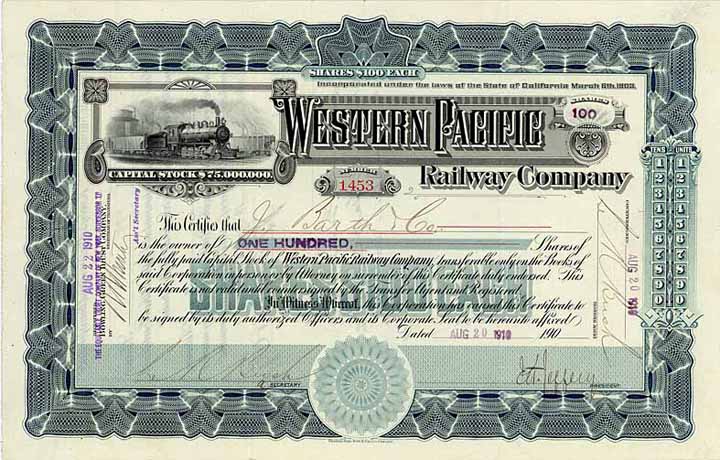 SHARES $100 EACH
Incorporated under the laws of the State of California March 6th, 1903.
WESTERN PACIFIC
SHARES
100
CAPITAL STOCK $75,000,000.
NUMBER
1453
Railway Company
TENS UNITS
This Certifies that J. Barth & Co.
is the owner of ONE HUNDRED, Shares of
the fully paid Capital Stock of Western Pacific Railway Company, transferable only on the Books of
said Corporation in person or by Attorney on surrender of this Certificate duly endorsed. This
Certificate is not valid until countersigned by the Transfer Agent and Registrar.
In Witness Whereof, the said Corporation has caused this Certificate to
be signed by its duly authorized Officers and its Corporate Seal to be hereunto affixed
Dated AUG 20 1910 191
SHARES $100 EACH
AUG 22 1910
Ass't Secretary
AUG 20 1910
SECRETARY
PRESIDENT
1 1
2 2
3 3
4 4
5 5
6 6
7 7
8 8
9 9
0 0